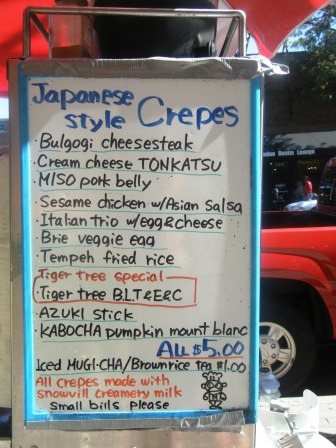 Japanese
style Crepes
· Bulgogi cheesesteak
· Cream cheese TONKATSU
· MISO pork belly
· Sesame chicken w/Asian Salsa
· Italian trio w/egg&cheese
· Brie veggie egg
· Tempeh fried rice
Tiger tree special
· Tiger tree B.L.T&E&C
· AZUKI stick
· KABOCHA pumpkin mount blanc
ALL $5.00
Iced MUGI-CHA/Brownrice tea $1.00
All crepes made with
snowvill creamery milk
small bills please
Denim Lounge